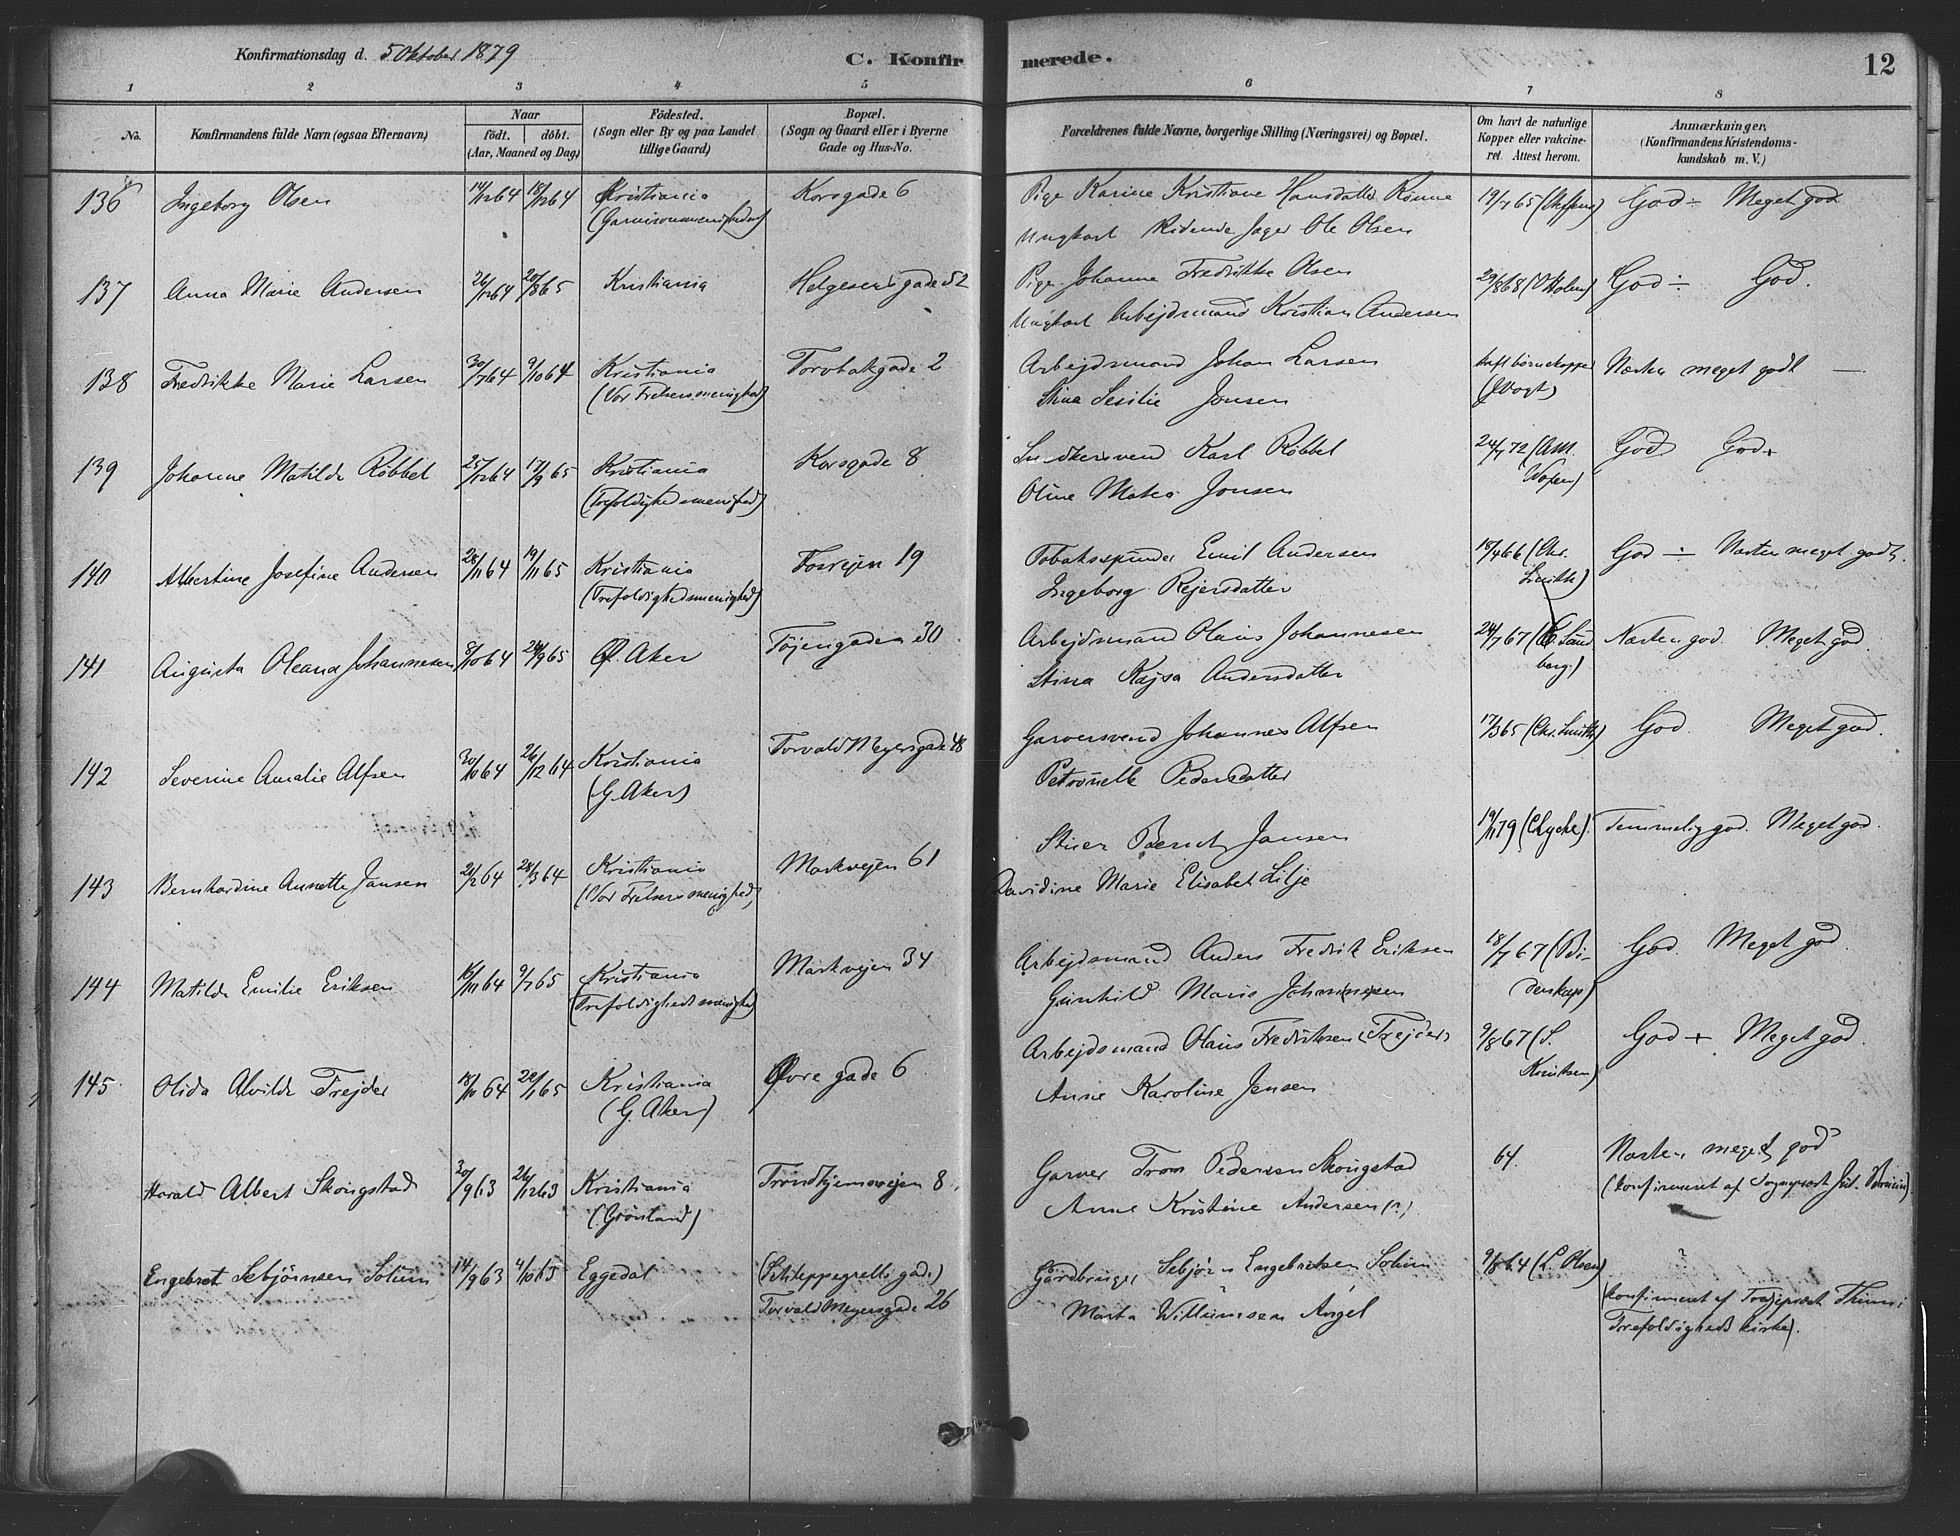 Konfirmationsdag d. 5 Oktober 1879
C. Konfirmerede.
12
1 2 3 4 5 6 7 8
No.
Konfirmandens fulde Navn (ogsaa Efternavn)
Naar
födt. döbt.
(Aar, Maaned og Dag)
Födested.
(Sogn eller By og paa Landet
tillige Gaard)
Bopæl.
(Sogn og Gaard eller i Byerne
Gade og Hus-No.
Forældrenes fulde Navne, borgerlige Stilling (Næringsvei) og Bopæl.
Om havt de naturlige
Kopper eller vakcine-
ret. Attest herom.
Anmærkninger.
(Konfirmandens Kristendoms-
kundskab m. V.)
136 Ingeborg Olsen 14/12 64 18/12 64 Kristiania Korsgade 6 Pige Karine Kristiane Hansdatter Rønne 19/7 65 God ÷ Meget god
(Garnisonsmenigheden) Ungkarl Ridende Jæger Ole Olsen
137 Anna Marie Andersen 26/12 64 20/8 65 Kristiania Helgesensgade 52 Pige Johanne Fredrikke Olsen 29/8 68 (Holm) God ÷ God.
Ungkarl Arbejdsmand Kristian Andersen
138 Fredrikke Marie Larsen 30/7 64 9/10 64 Kristiania Torvbakgade 2 Arbejdsmand Johan Larsen Haft børnekopper Næsten meget godt —
(Vor Frelsers menighed) Stina Sesilie Jonsen (Vogt)
139 Johanne Matilde Røbbel 25/12 64 17/9 65 Kristiania Korsgade 8 Snedkersvend Karl Røbbel 24/7 72 God God+
(Trefoldighedsmenighed) Oline Matea Jonsen
140 Albertine Josefine Andersen 28/11 64 19/11 65 Kristiania Fosvejen 19 Tobaksspinder Emil Andersen 18/4 66 (Chr. God ÷ Næsten meget godt.
(Trefoldighedsmenighed) Ingeborg Rejersdatter Smith)
141 Augusta Oleana Johannesen 8/10 64 24/9 65 Ø. Aker Tøjengaden 30 Arbejdsmand Olaus Johannesen 24/7 67 (C Sand Næsten god. Meget god.
Stina Kajsa Andersdatter berg.)
142 Severine Amalie Alfsen 30/10 64 26/12 64 Kristiania Torvald Meyersgade 48 Garversvend Johannes Alfsen 17/3 65 (Chr. Smith) God. Meget god.
(G. Aker) Petronelle Pedersdatter
143 Bernhardine Annette Jansen 21/2 64 28/3 64 Kristiania Markvejen 61 Stuer Bernt Jansen 19/11 79 (Lyche). Temmelig god. Meget god.
(Vor Frelsers menighed) Davidine Marie Elisabet Lilje
144 Matilde Emilie Eriksen 16/11 64 9/7 65 Kristiania Markvejen 34 Arbejdsmand Anders Fredrik Eriksen 18/7 67 (Bi- God. Meget god
(Trefoldighedsmenighed) Gunhild Marie Johannesen denkap)
145. Olida Alvilde Trejder 18/10 64 22/1 65 Kristiania Øvre gade 6 Arbejdsmand Olaus Fredriksen (Trejder) 9/8 67 (S. God + Meget god.
(G. Aker) Anne Karoline Jensen Knutsen)
Harald Albert Skougstad 30/9 63 26/12 63 Kristiania Trondhjemsvejen 8. Garver Tron Pedersen Skougstad 64. Næsten meget god
(Grønland) Anne Kristine Andersen (konfirmeret af Sogneprest
Engebret Sebjørnsen Solum 14/9 63 4/10 63 Eggedal (Schleppegrells gade) Gårdbruger Sebjørn Engebretsen Solum 9/8 64 (L. Olsen) ?
Torvald Meyersgade 26 Marta Willumsen Angel (konfirmeret af
Trefoldigheds kirke).